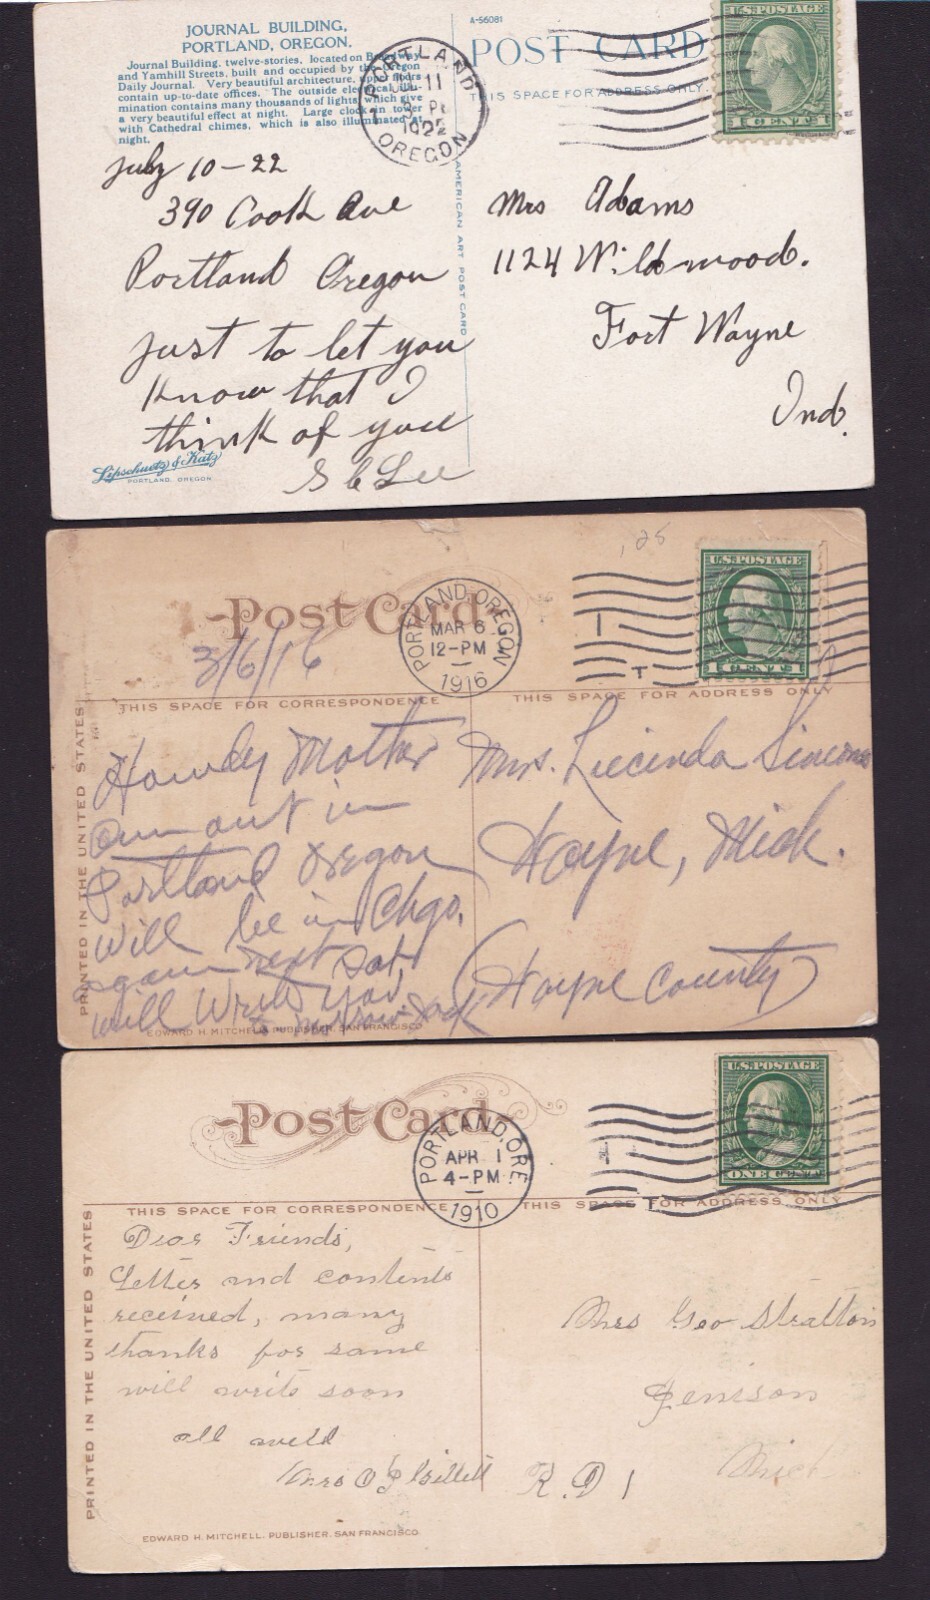 JOURNAL BUILDING,
PORTLAND, OREGON.
Journal Building, twelve-stories, located on Broadway
and Yamhill Streets, built and occupied by the Oregon
Daily Journal. Very beautiful architecture, upper floors
contain up-to-date offices. The outside electrical illu-
mination contains many thousands of lights which give
a very beautiful effect at night. Large clock in tower
with Cathedral chimes, which is also illuminated at
night.
A-56081
POST CARD
THIS SPACE FOR ADDRESS ONLY.
U.S. POSTAGE
1 CENT 1
PORTLAND
JUL 11
3 PM
1922
OREGON
July 10-22
390 Cook Ave
Portland Oregon
just to let you
know that I
think of you
S C Lee
Lipschuetz & Katz
PORTLAND, OREGON
AMERICAN ART POST CARD
Mrs Adams
1124 Wildwood.
Fort Wayne
Ind.
,25
Post Card
PORTLAND, OREGON
MAR 6
12-PM
1916
U.S. POSTAGE
1 CENT 1
3/6/16
THIS SPACE FOR CORRESPONDENCE
THIS SPACE FOR ADDRESS ONLY
PRINTED IN THE UNITED STATES
Howdy Mother
Am out in
Portland Oregon
will be in Chgo.
again next Sat.
will write you
to morrow Jack
EDWARD H. MITCHELL, PUBLISHER, SAN FRANCISCO
Mrs. Lucinda Simons
Wayne, Mich.
(Wayne County)
Post Card
PORTLAND, ORE.
APR 1
4-PM
1910
U.S. POSTAGE
ONE CENT
THIS SPACE FOR CORRESPONDENCE
THIS SPACE FOR ADDRESS ONLY
PRINTED IN THE UNITED STATES
Dear Friends,
Letter and contents
received, many
thanks for same
will write soon
all well
Mrs O P Gillett
EDWARD H. MITCHELL, PUBLISHER, SAN FRANCISCO.
Mrs Geo Stratton
Jenison
Mich
R.D 1